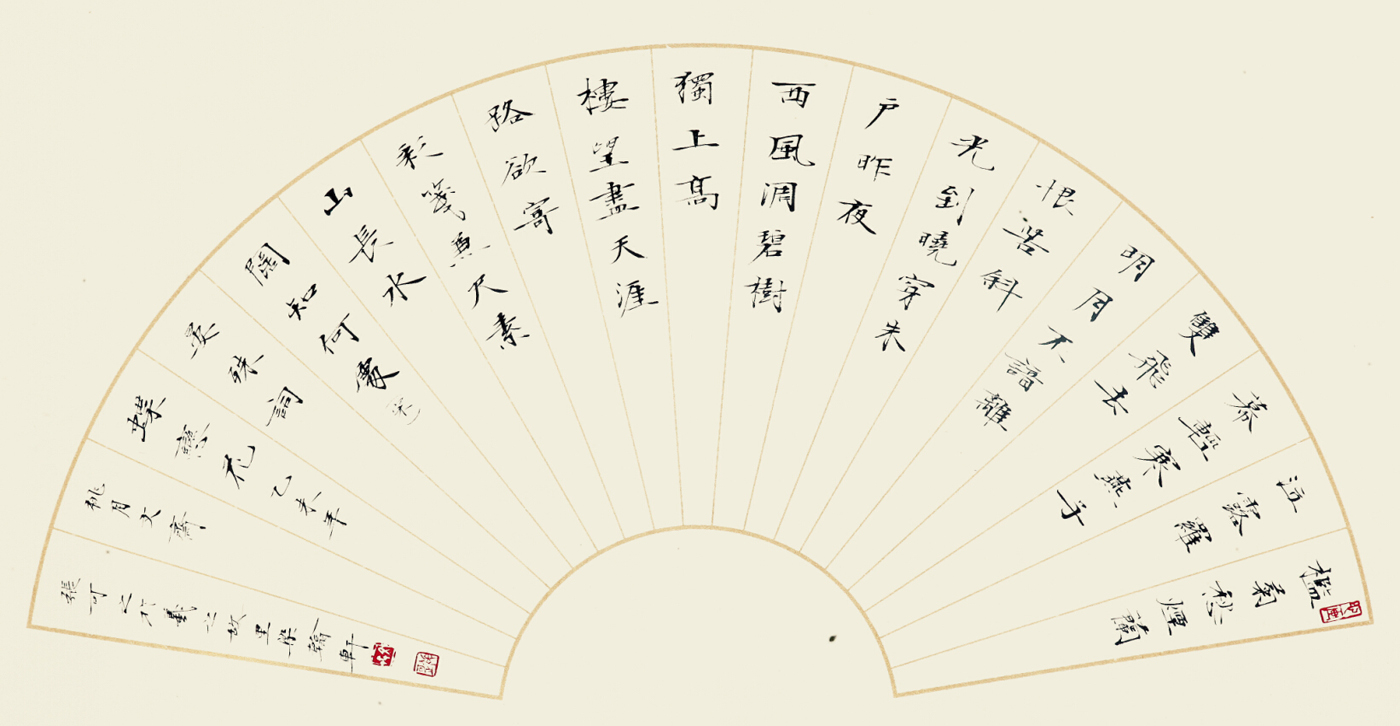 檻菊愁煙蘭
泣露羅
幕輕寒燕子
雙飛去
明月不諳離
恨苦斜
光到曉穿朱
户昨夜
西風凋碧樹
獨上高
樓望盡天涯
路欲寄
彩箋兼尺素
山長水
闊知何處
晏殊詞
蝶戀花乙未年
桃月文齋
張可之於羲之故里翰軒